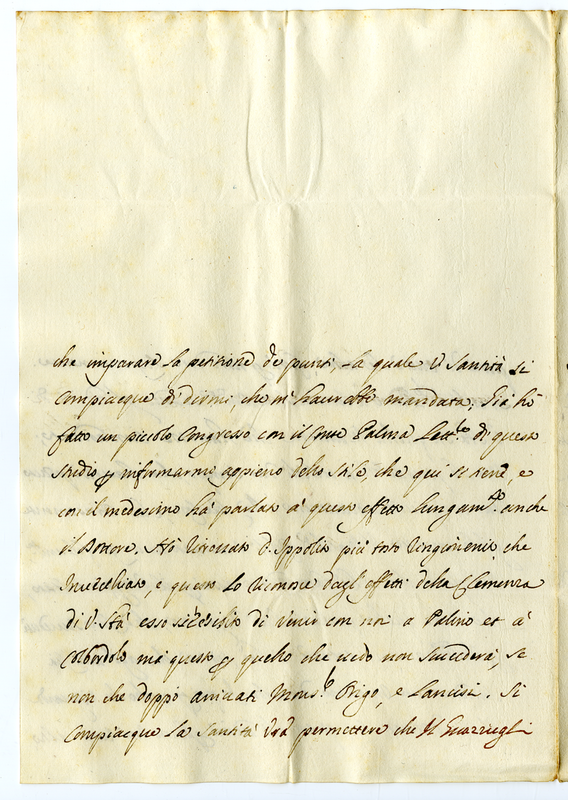 che imparare la petitione de punti, la quale V Santità si
compiacque di dirmi, che m'haurebbe mandata. Già hò
fatto un piccolo Congresso con il Conte Palma Lett.re di questo
studio p informarmi appieno dello stile, che qui si tiene, e
con il medesimo hà parlato a' questo effetto lungam.te anche
il Dottore. Hò ritrovato D. Ippolito più tosto ringiovenito che
Invecchiato, e questo lo riconosce dagl'effetti della Clemenza
di V. Stà esso si di venir con noi a Palino et a'
Colbordolo mà questo p quello che vedo non succederà, se
non che doppò arrivati Mons.r Origo, e Lancisi. Si
compiacque la Santità Vrã permettere che Il